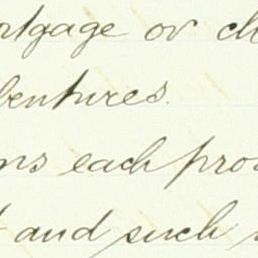 ortgage or ch
bentures.
ns each pro
and such